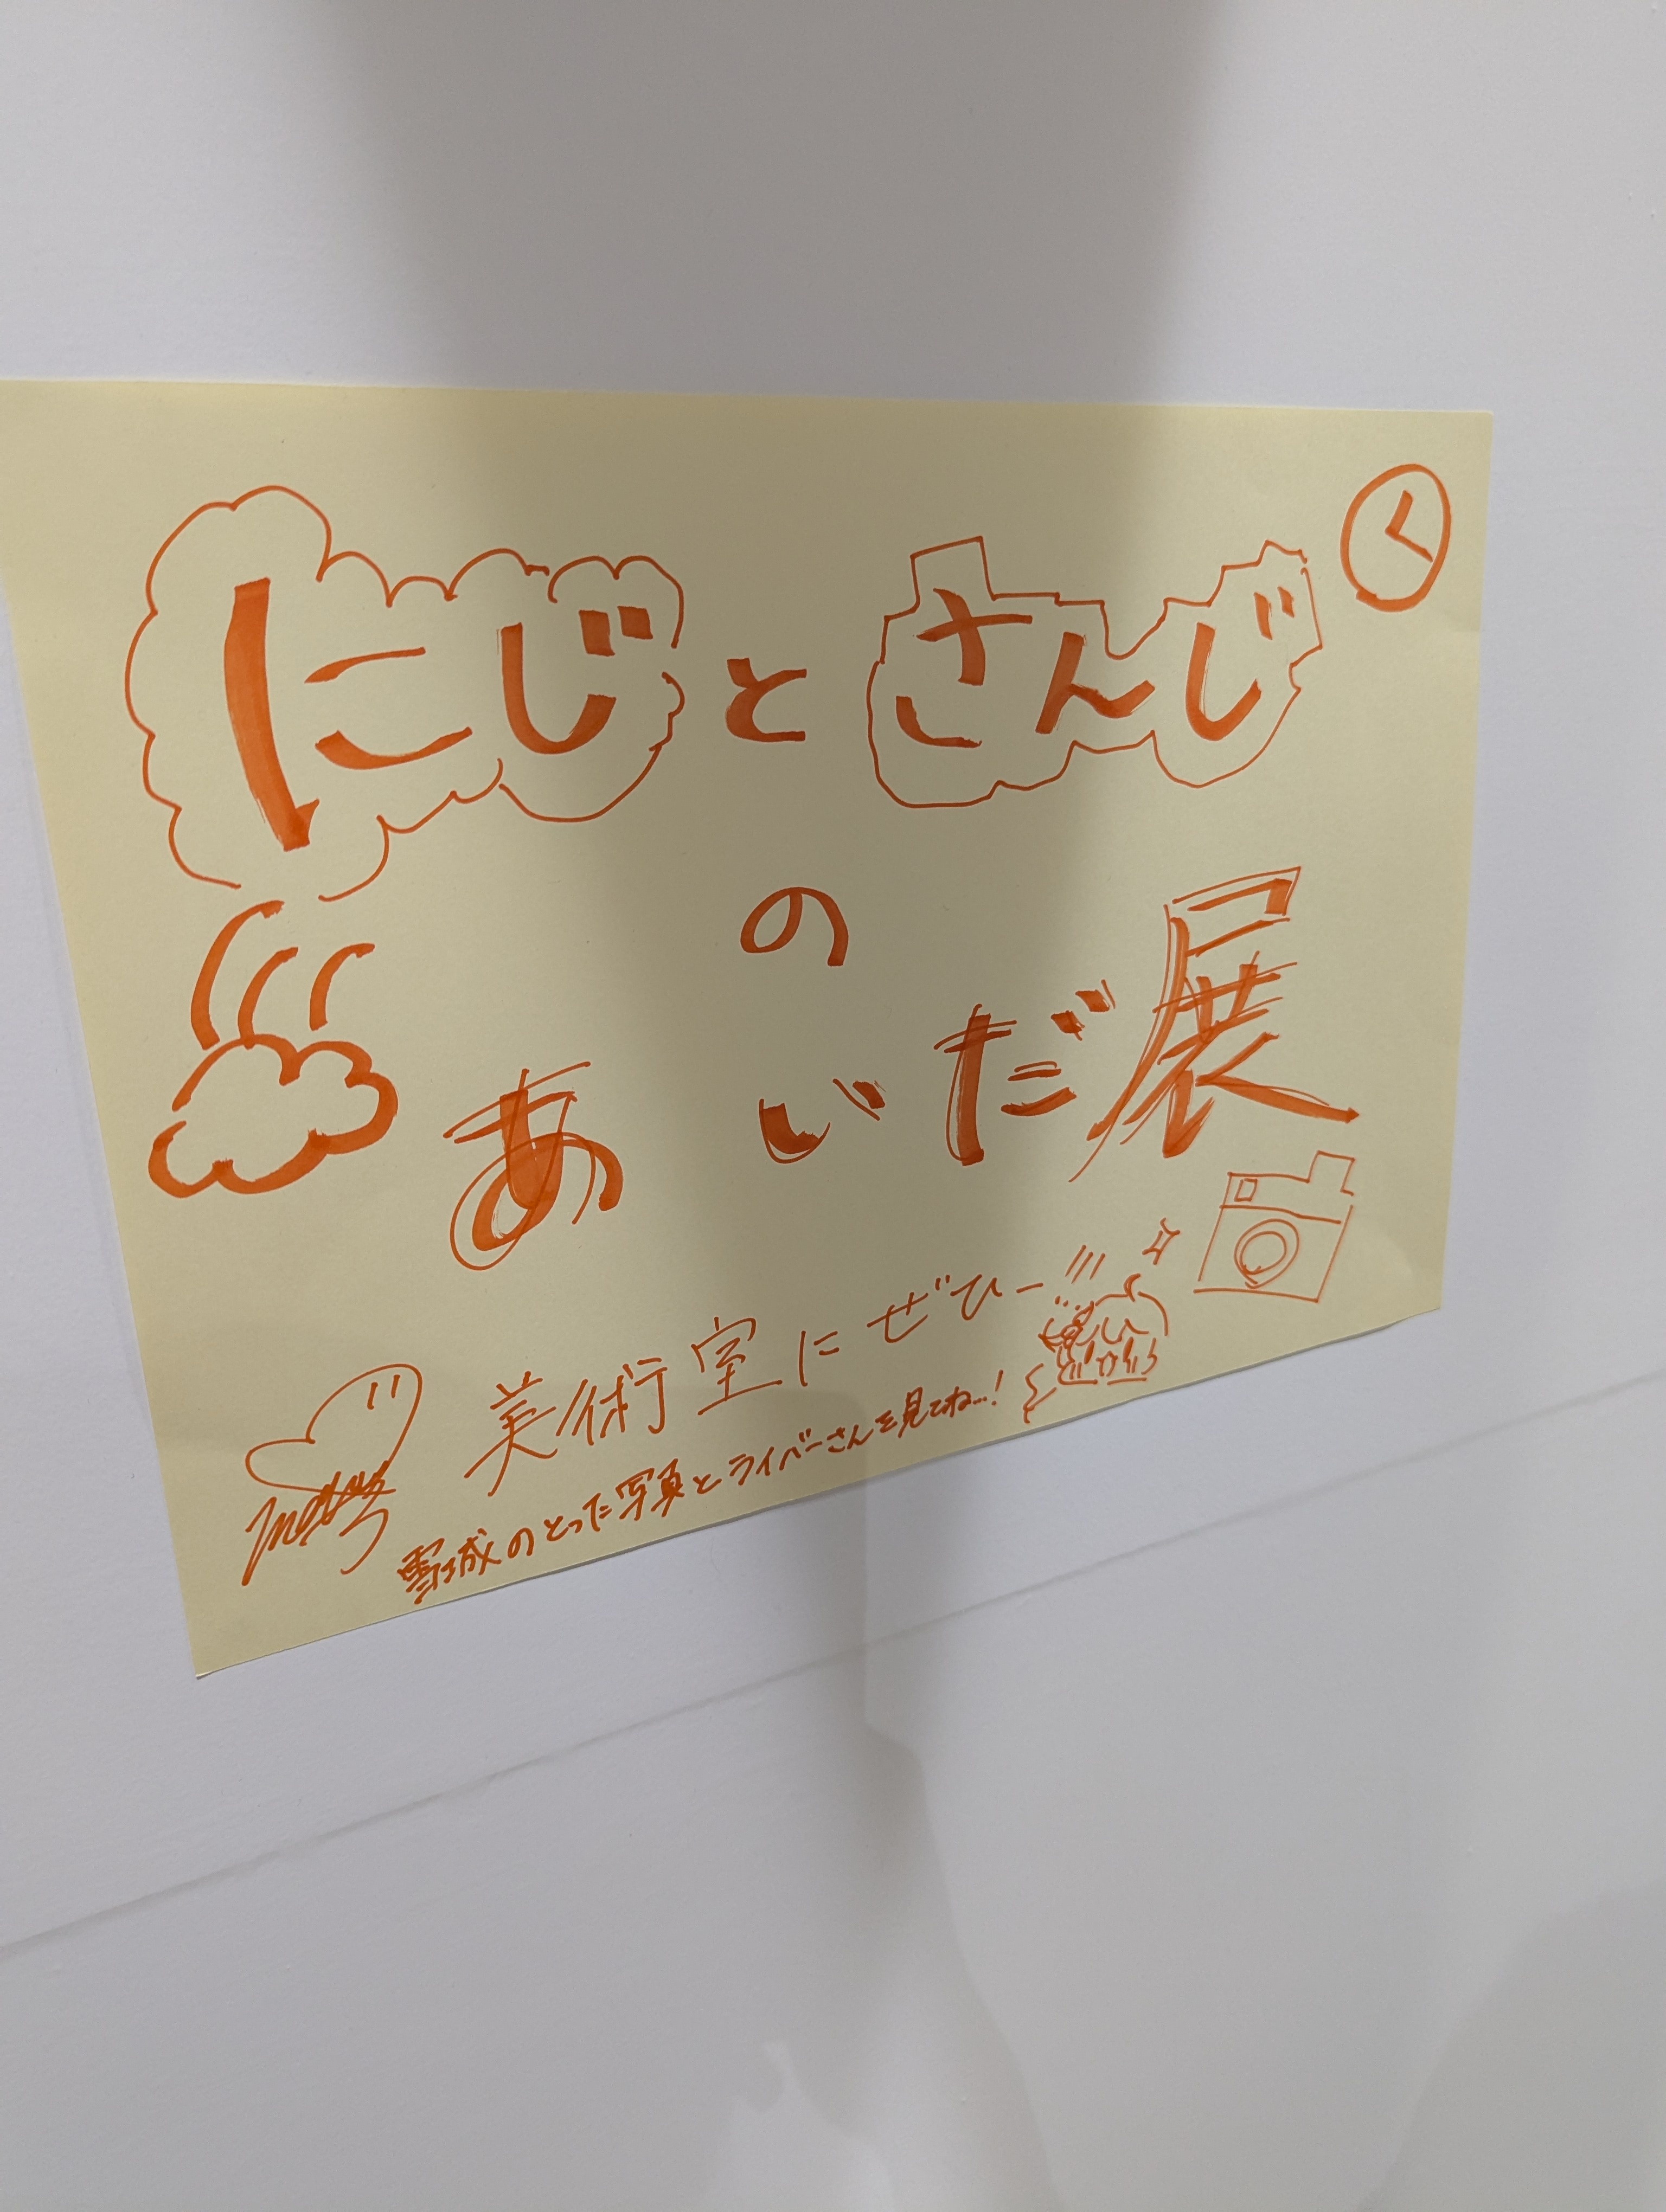 にじとさんじ
の
あいだ展
美術室にぜひー!!!
雪城のとった写真とライバーさんを見てね…!